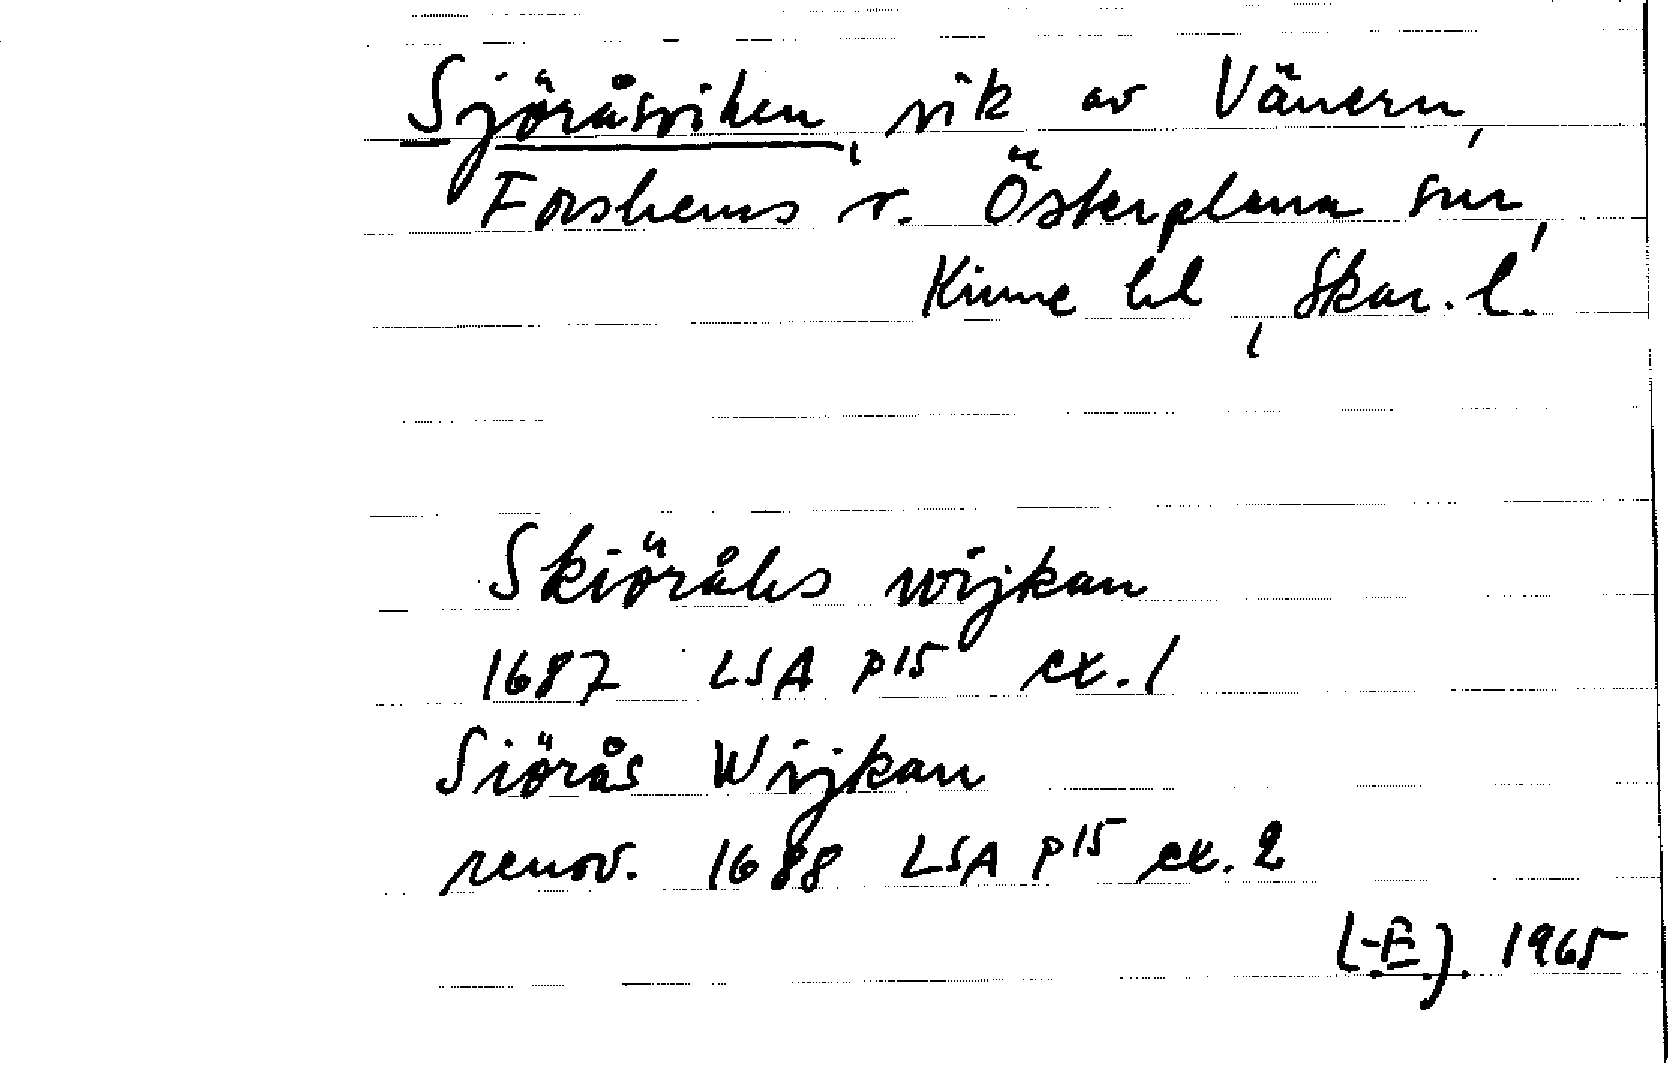 Sjöråsviken, vik av Vänern,
Forshems o. Österplana snr,
Kinne hd, Skar. l.
Skiöråhs wijkan
1687 LSA P15 ex. 1
Siörås Wijkan
renov. 1688 LSA P15 ex. 2
1965